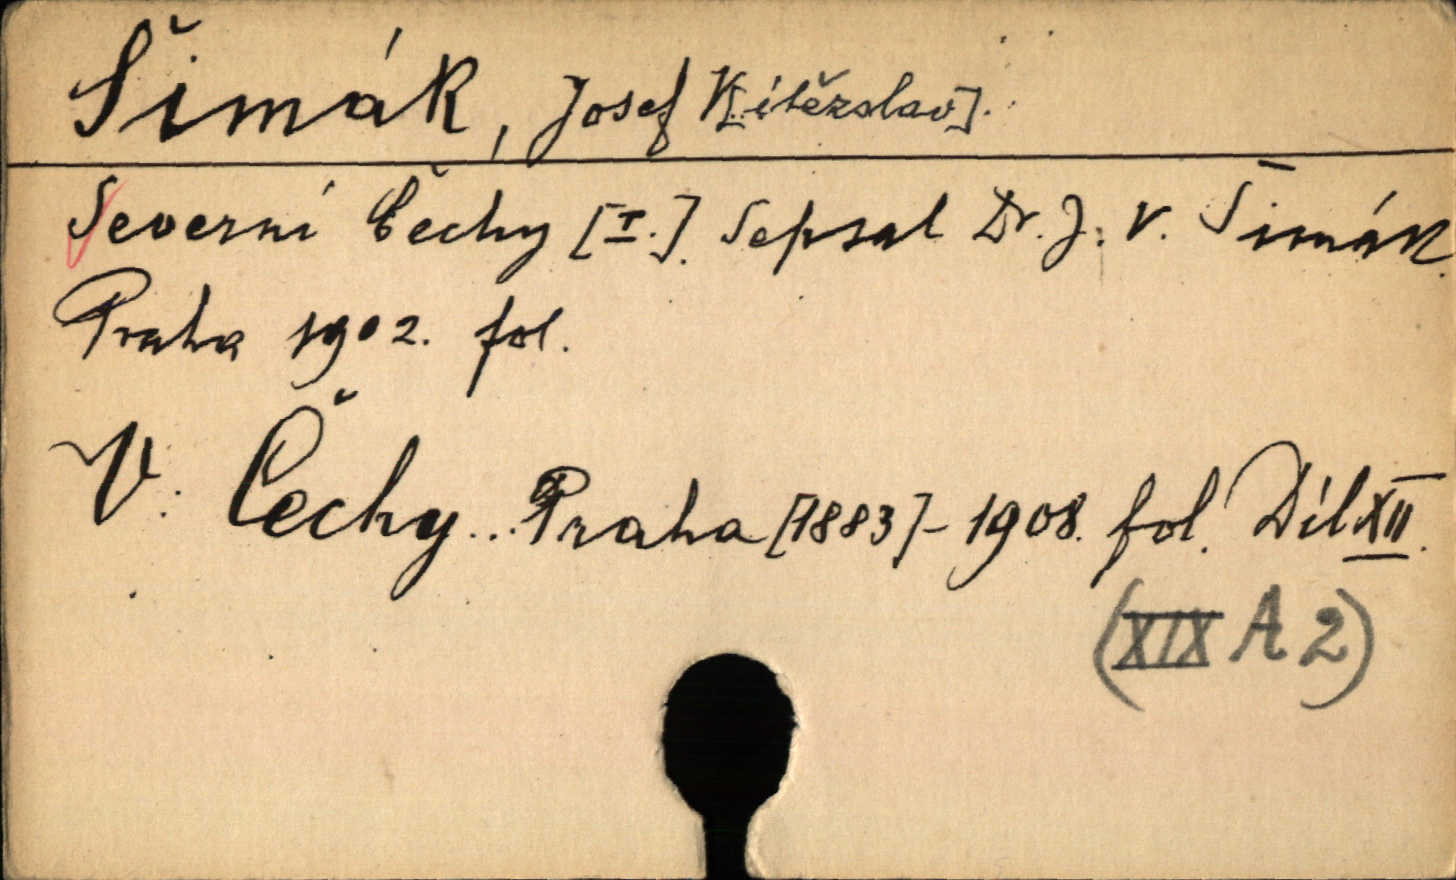 Šimák, Josef V[ítězslav].
Severní Čechy [I.]. Sepsal Dr. J. V. Šimák.
Praha 1902. fol.
V: Čechy... Praha [1883]-1908. fol. Díl XII.
(XIX A 2)